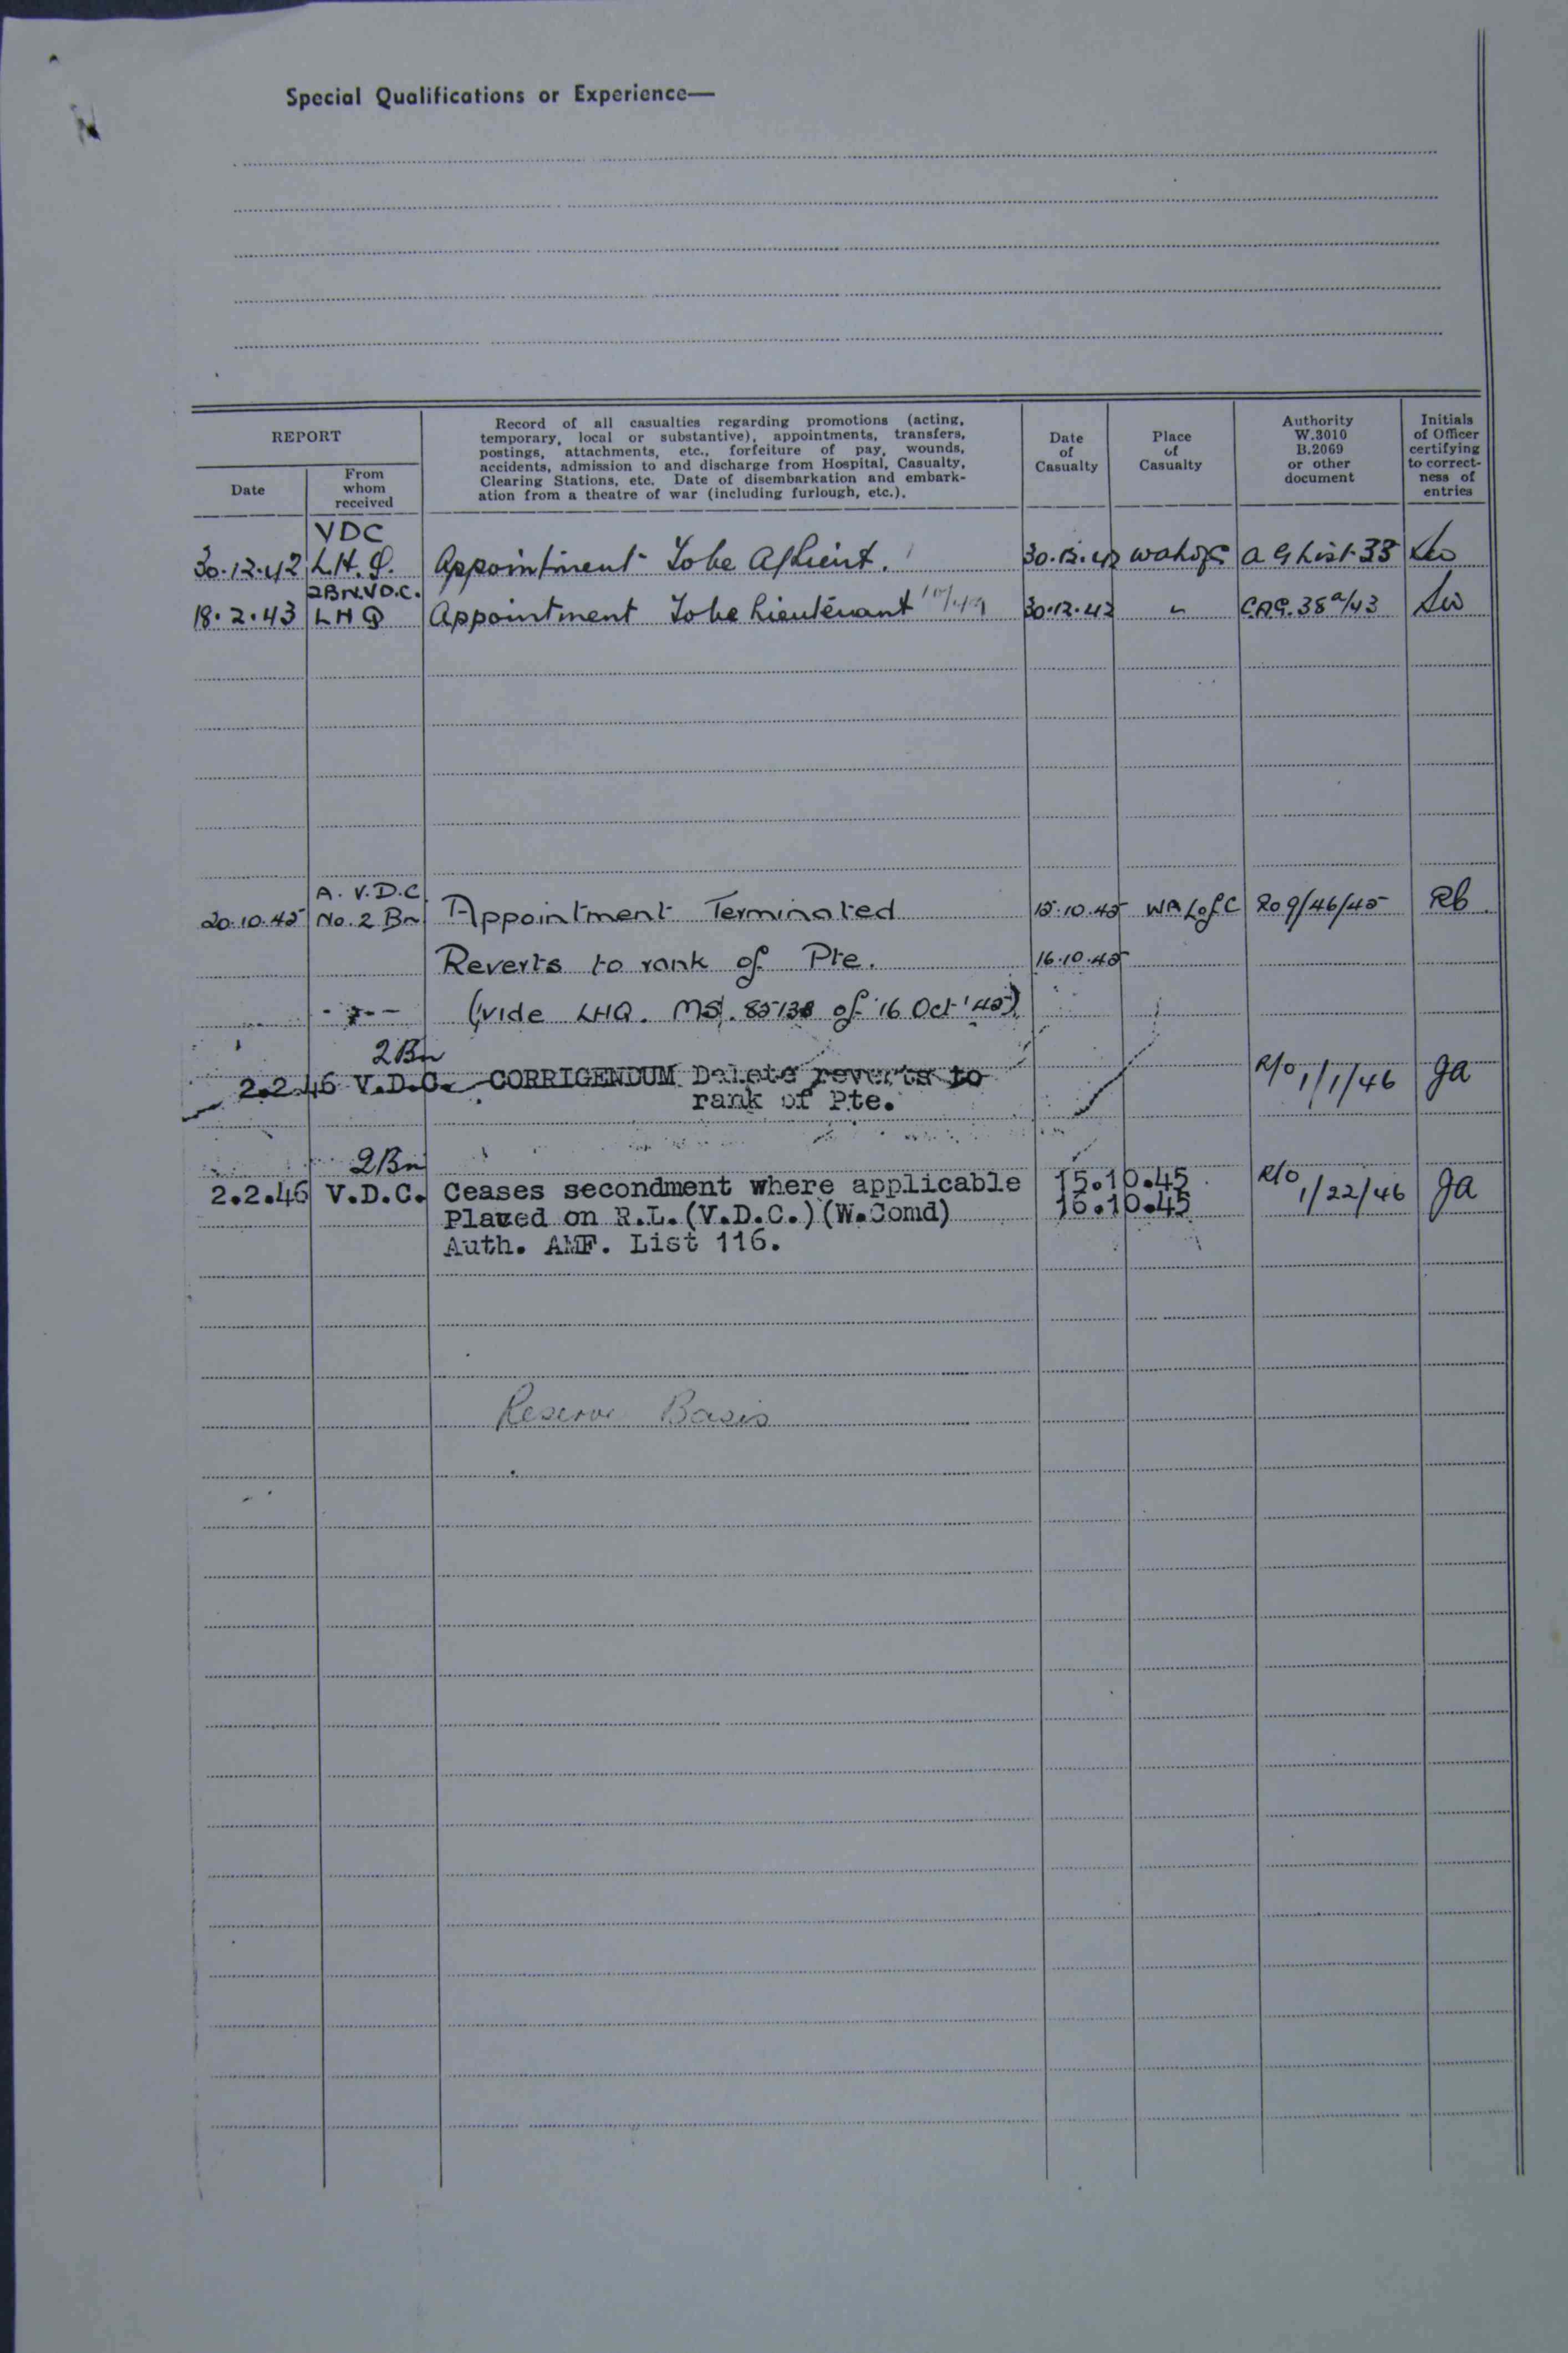 Special Qualifications or Experience—
REPORT
Date
From
whom
received
Record of all casualties regarding promotions (acting,
temporary, local or substantive), appointments, transfers,
postings, attachments, etc., forfeiture of pay, wounds,
accidents, admission to and discharge from Hospital, Casualty,
Clearing Stations, etc. Date of disembarkation and embark-
ation from a theatre of war (including furlough, etc.).
Date
of
Casualty
Place
of
Casualty
Authority
W.3010
B.2069
or other
document
Initials
of Officer
certifying
to correct-
ness of
entries
VDC
30.12.42 L.H.Q. Appointment To be A/Lieut. 30.12.42 WALofC AG List 33
2BN.V.D.C.
18.2.43 LHQ Appointment To be Lieutenant 30.12.42 " CAG.38a/43
A.V.D.C.
20.10.45 No.2 Bn Appointment Terminated 15.10.45 WALofC RO 9/46/45 Rb
Reverts to rank of Pte. 16.10.45
(vide LHQ. MS. 85138 of 16 Oct '45)
2Bn
2.2.46 V.D.C. CORRIGENDUM Delete reverts to R/O 1/1/46 ga
rank of Pte.
2Bn
2.2.46 V.D.C. Ceases secondment where applicable 15.10.45 R/O 1/22/46 ga
Placed on R.L.(V.D.C.)(W.Comd) 16.10.45
Auth. AMF. List 116.
Reserve Basis